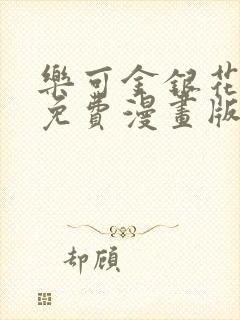 樂可金銀花
免費漫畫版
却顧